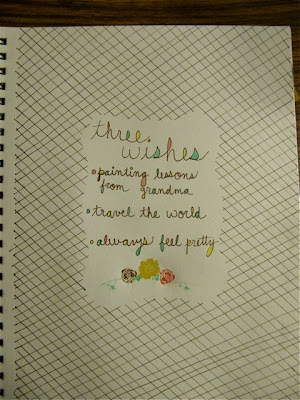 three
wishes
• painting lessons
from grandma
• travel the world
• always feel pretty